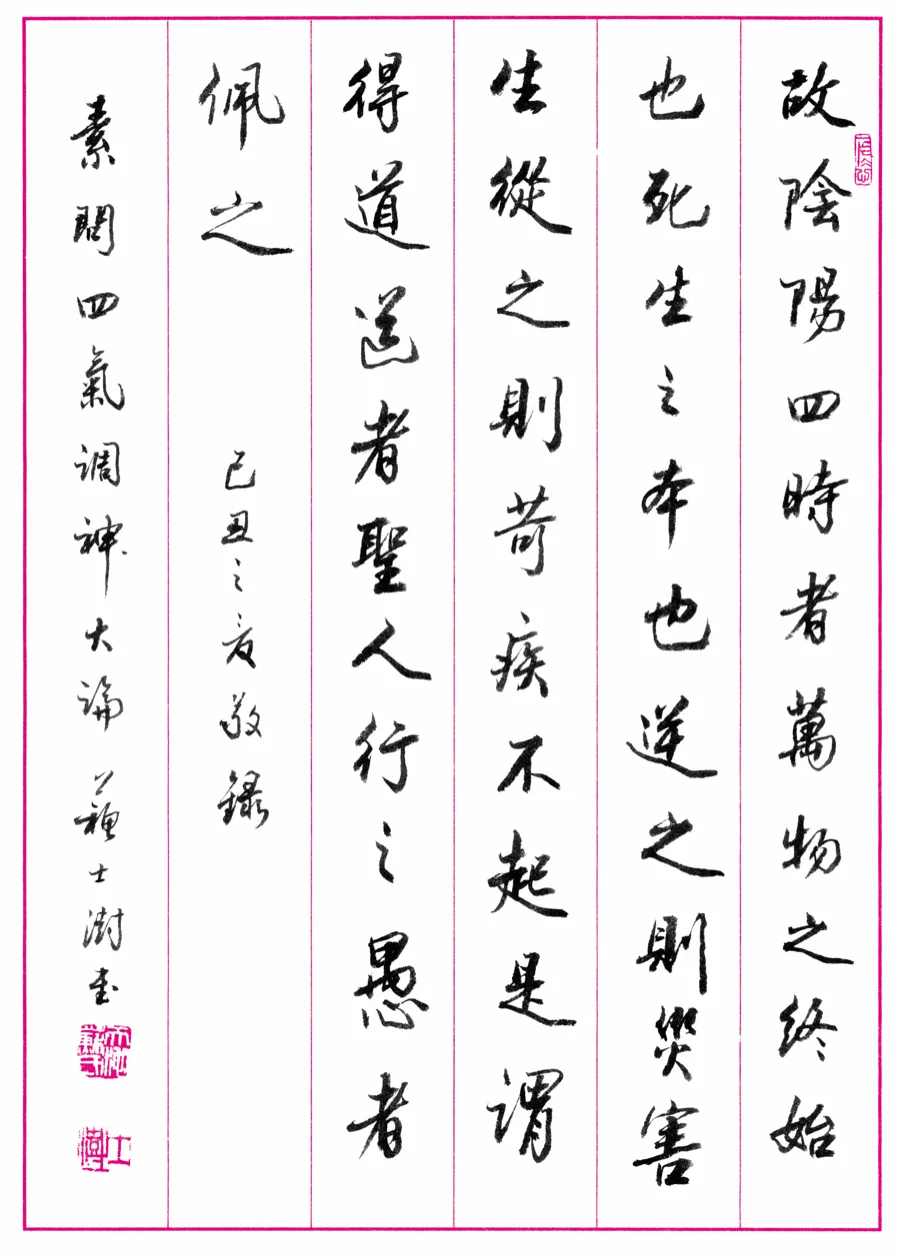 故陰陽四時者萬物之終始
也死生之本也逆之則災害
生從之則苛疾不起是謂
得道道者聖人行之愚者
佩之
己丑之夏敬錄
素問四氣调神大論 蘇士澍書